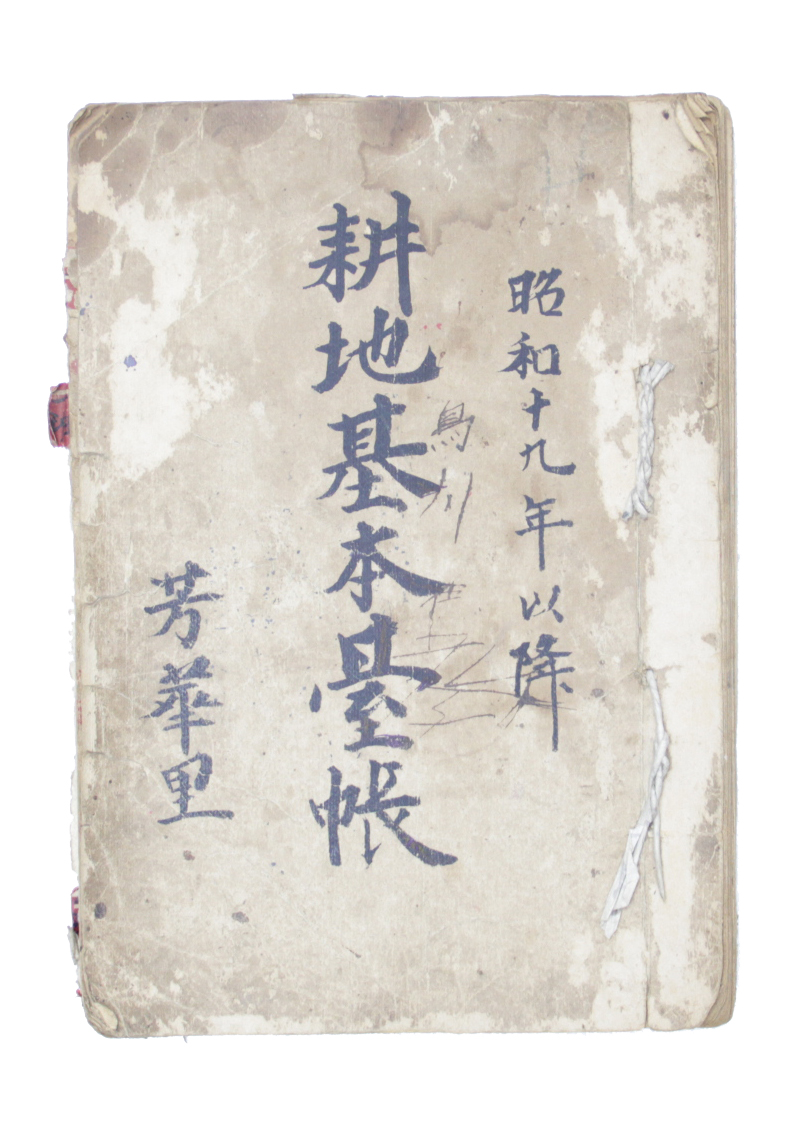 昭和十九年以降
耕地基本臺帳
芳華里